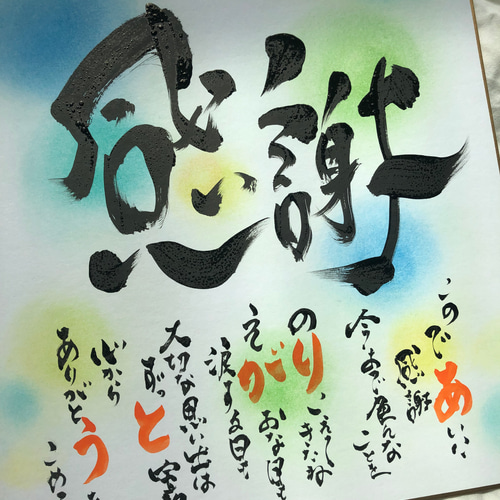 感謝
このであいに
感謝
今まで色んなことを
のりこえてきたね
えがおな日も
涙する日も
大切な思い出は
ずっと宝
心から
ありがとうをこめ